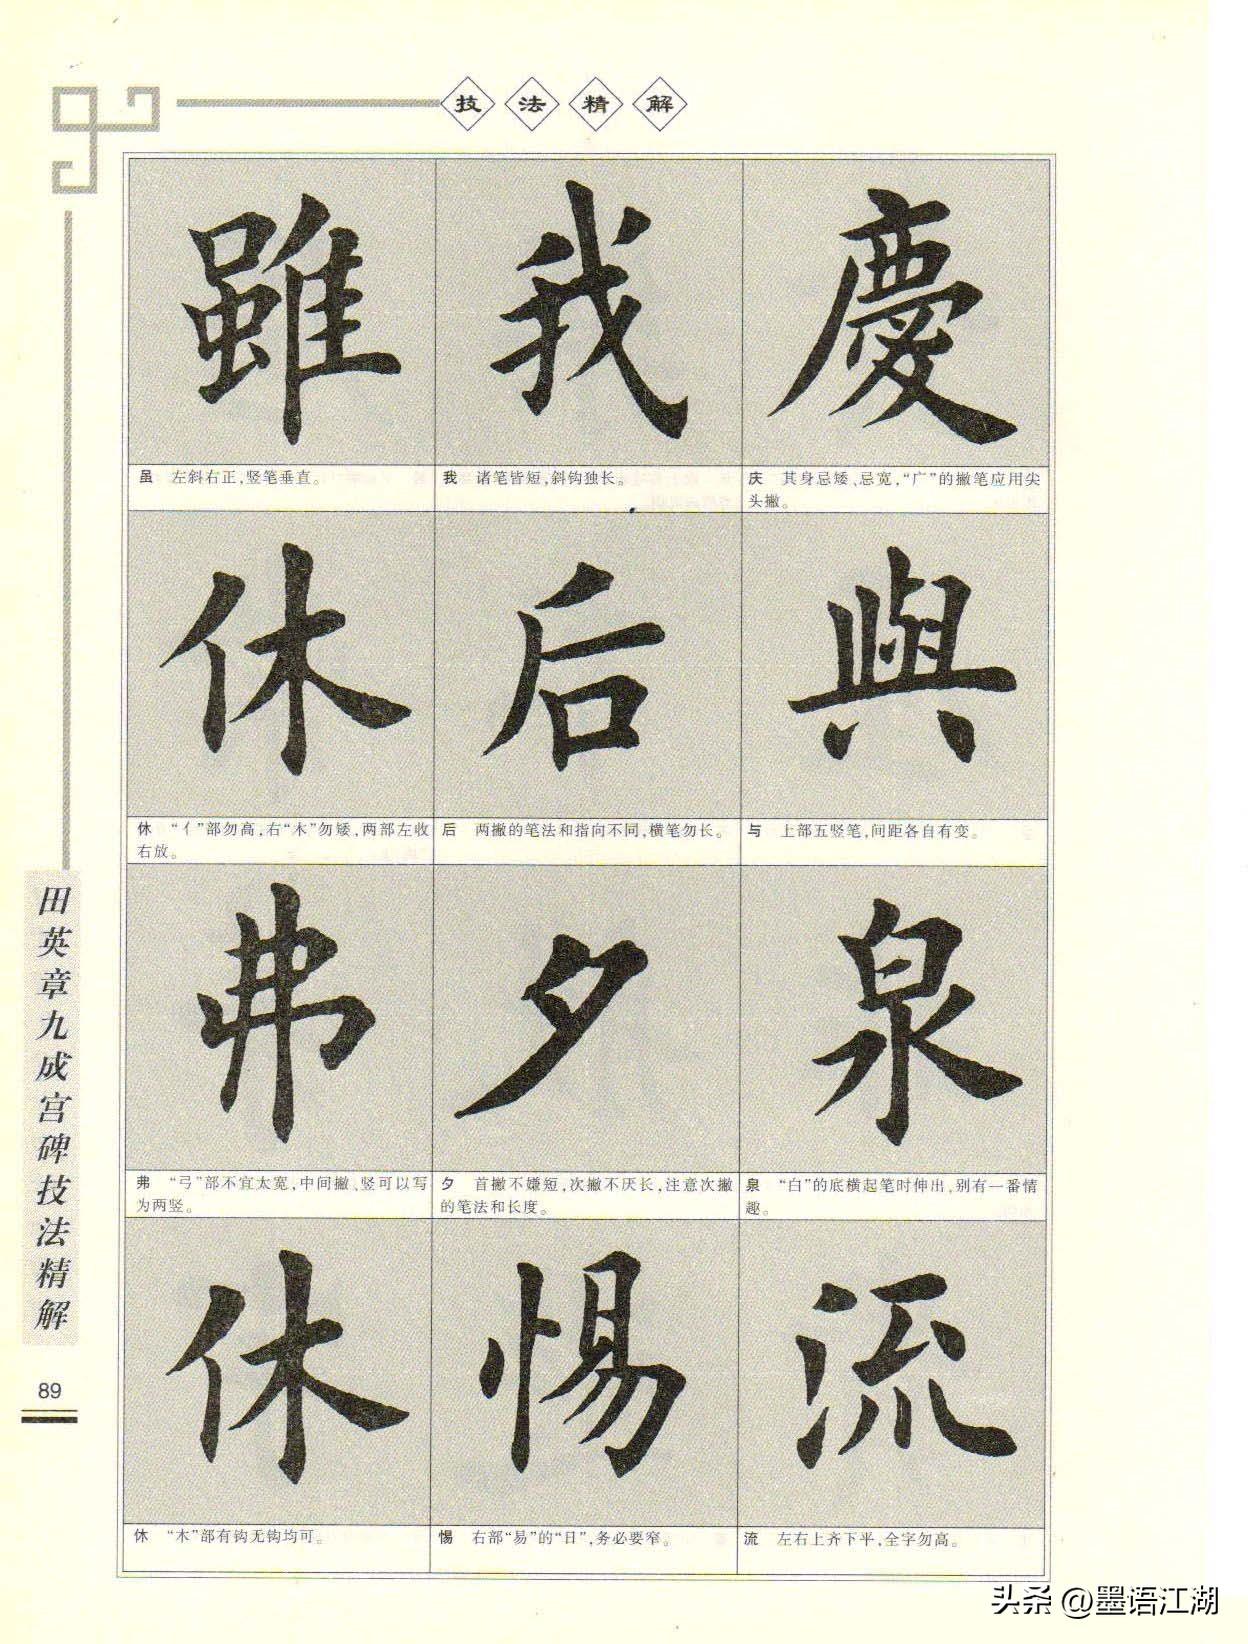 技法精解
雖
我
慶
虽 左斜右正,竖笔垂直。
我 诸笔皆短,斜钩独长。
庆 其身忌矮、忌宽,“广”的撇笔应用尖
头撇。
休
后
與
休 “亻”部勿高,右“木”勿矮,两部左收
右放。
后 两撇的笔法和指向不同,横笔勿长。
与 上部五竖笔,间距各自有变。
弗
夕
泉
弗 “弓”部不宜太宽,中间撇、竖可以写
为两竖。
夕 首撇不嫌短,次撇不厌长,注意次撇
的笔法和长度。
泉 “白”的底横起笔时伸出,别有一番情
趣。
休
惕
流
休 “木”部有钩无钩均可。
惕 右部“易”的“日”,务必要窄。
流 左右上齐下平,全字勿高。
田英章九成宫碑技法精解
89
头条 @墨语江湖